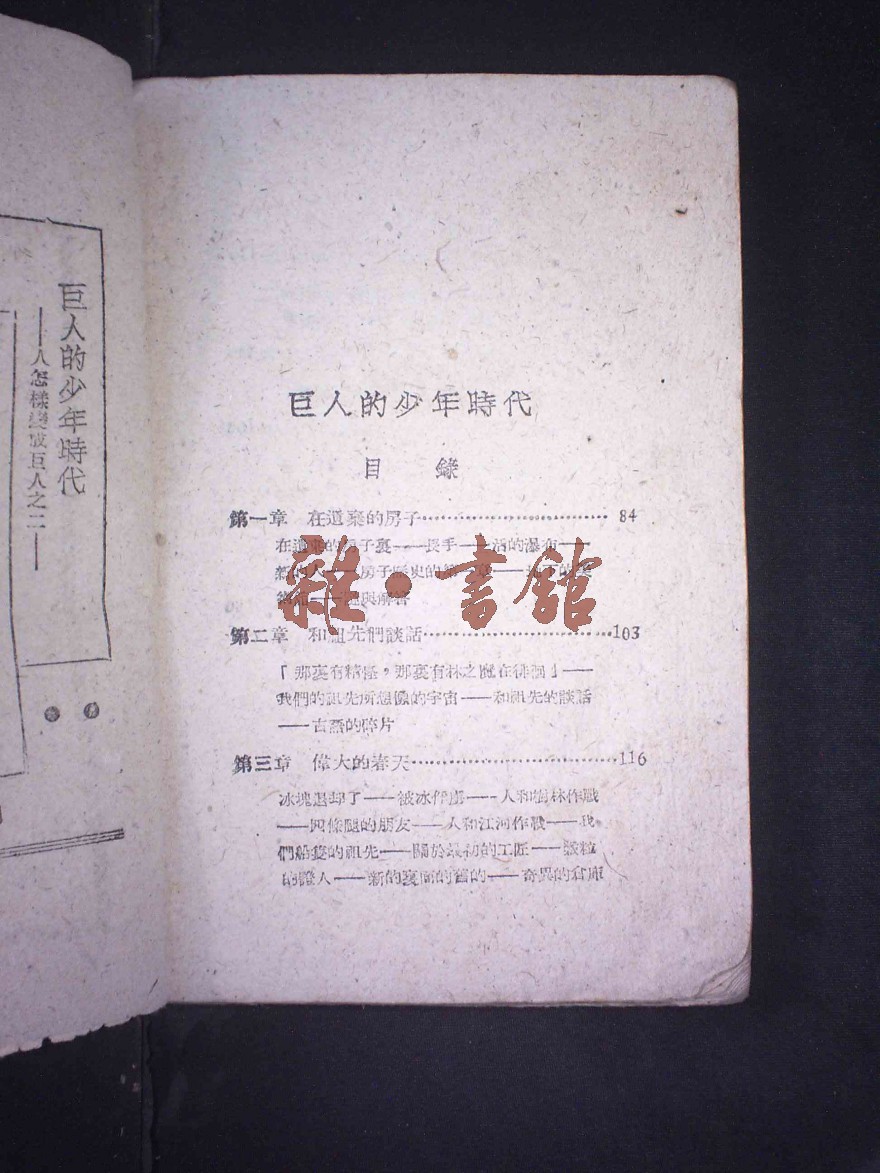 巨人的少年時代
——人怎樣變成巨人之二——
巨人的少年時代
目 錄
第一章 在遺棄的房子 84
在遺棄的房子裏——長手——活的瀑布——
新的人——房子歷史的第一章——地下的
——與解答
第二章 和祖先們談話 103
「那裏有精怪，那裏有林之魔在徘徊」——
我們的祖先所想像的宇宙——和祖先的談話
——古語的碎片
第三章 偉大的春天 116
冰塊退却了——被冰俘虜——人和樹林作戰
——四條腿的朋友——人和江河作戰——我
們船隻的祖先——關於最初的工匠——穀粒
的證人——新的裏面的舊的——奇異的倉庫
雜·書館